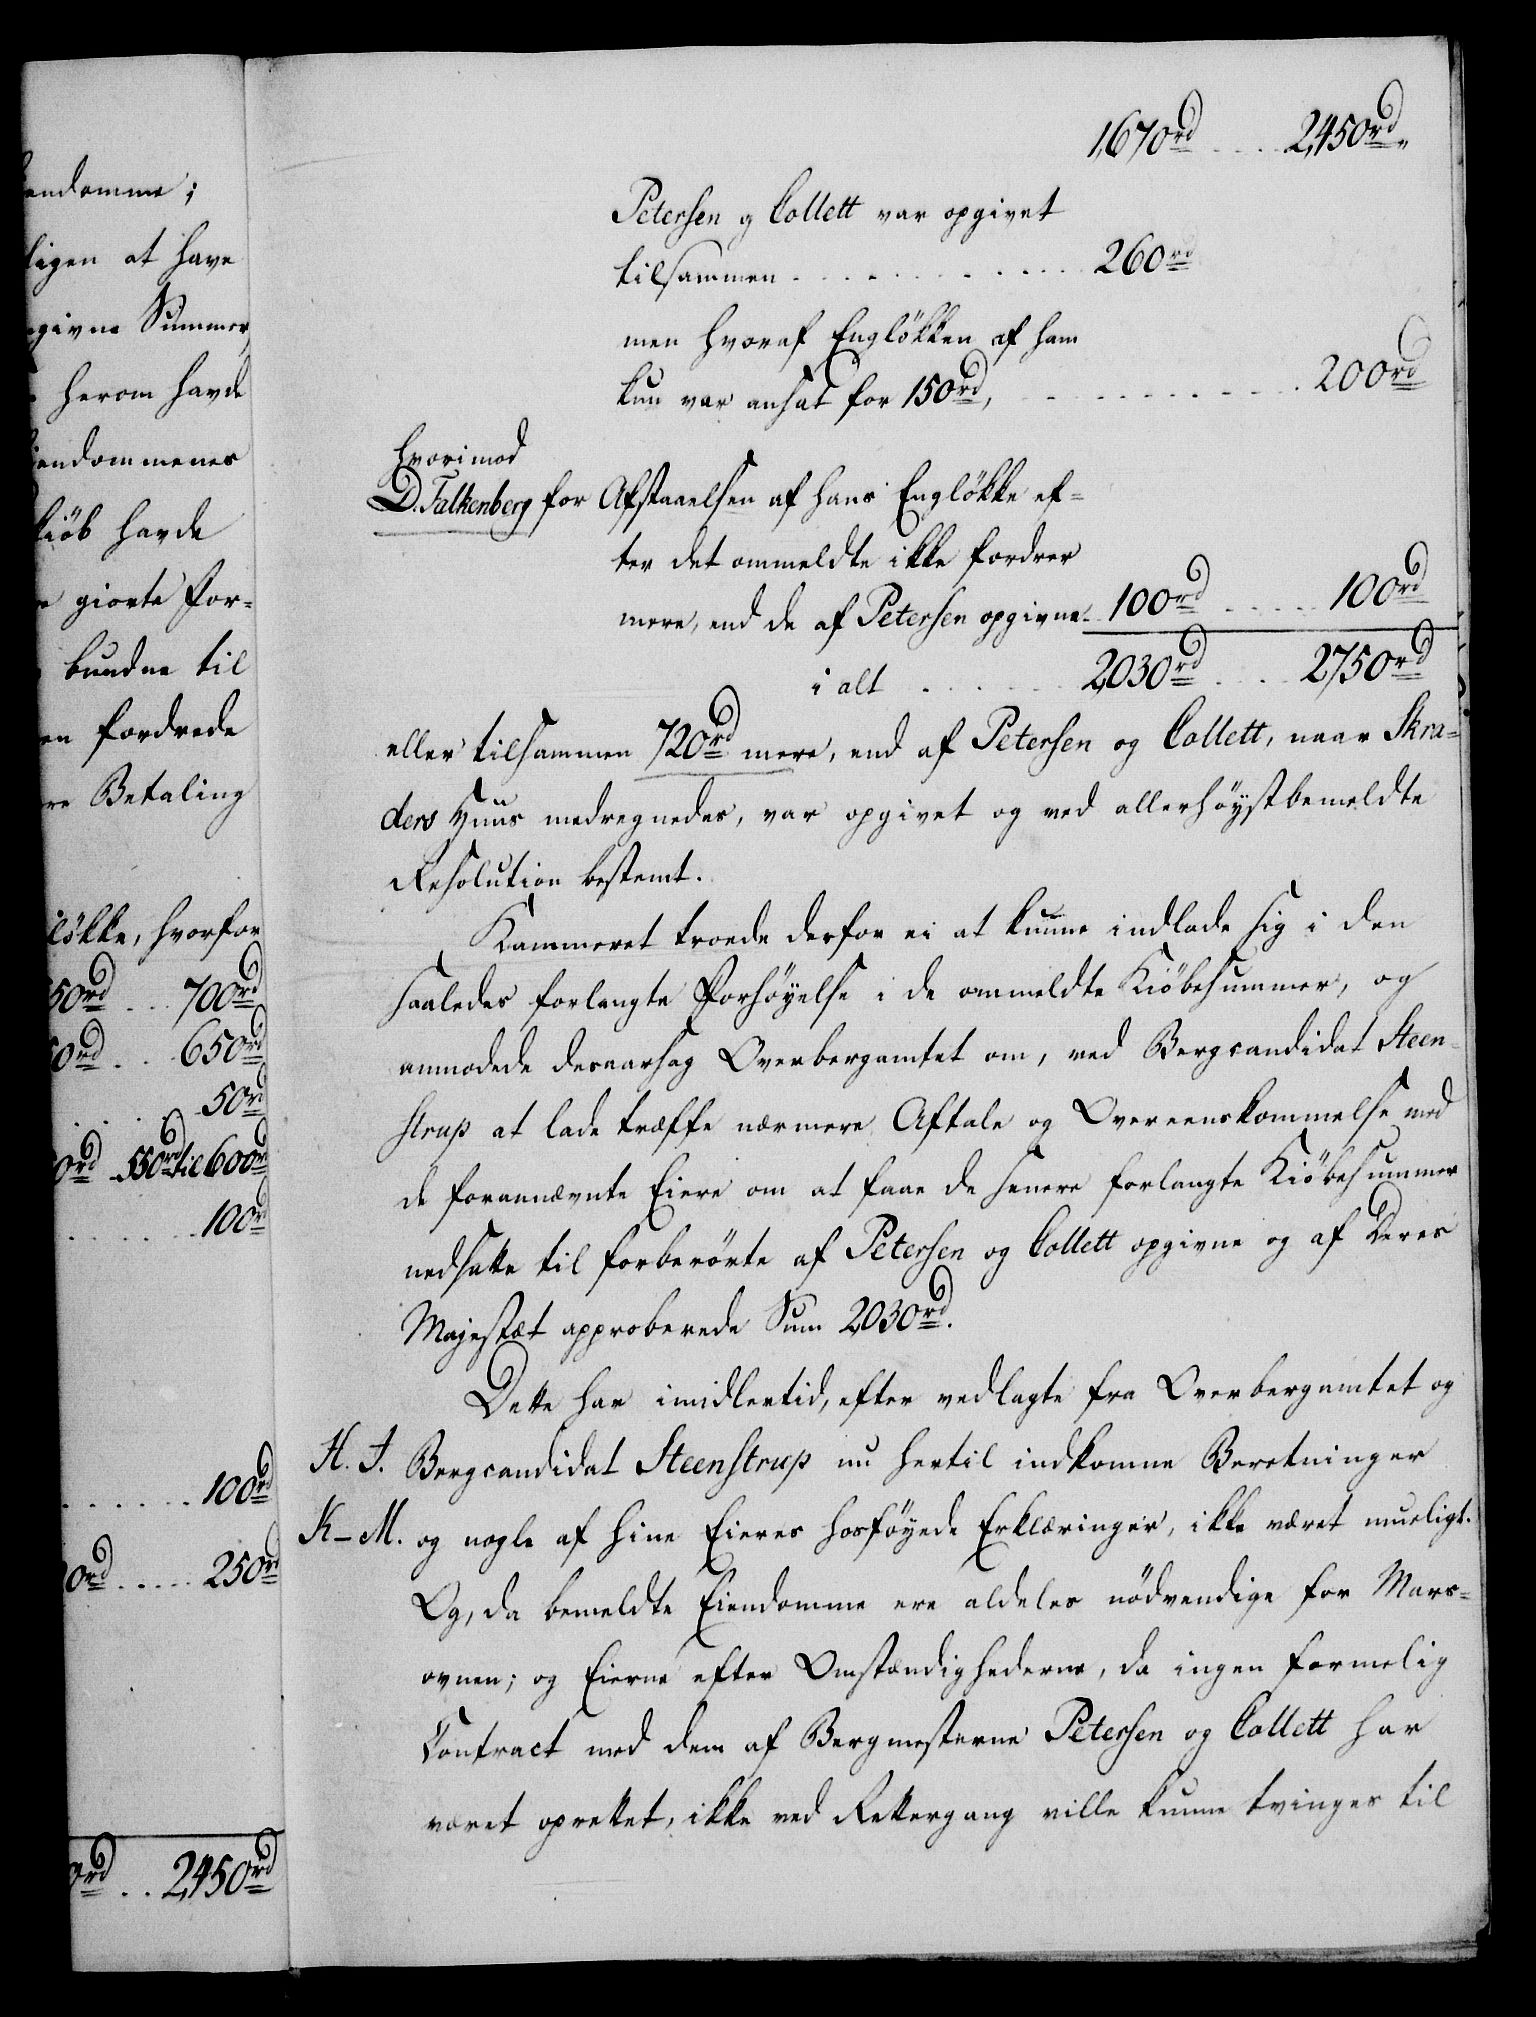 endomme;
ligen at have
givne Summer,
herom havde
iendommenes
kiöb havde
giorte For-
bundne til
en fordrede
re Betaling
lökke, hvorfor
50rd . . 700rd
0rd . . 650rd
50rd
0rd 550rd til 600rd
. . . . . . 100rd
. . . . . . 100rd
0rd . . . . . 250rd
0rd . . 2,450rd
1,670rd . . . . 2,450rd.
Petersen og Collett var opgivet
tilsammen . . . . . . . . . . 260rd
men hvoraf Englökken af ham
kun var ansat for 150rd, . . . . . . . . . . 200rd
hvorimod
D. Falkenberg for Afstaaelsen af hans Englökke ef-
ter det ommeldte ikke fordrer
mere, end de af Petersen opgivne 100rd . . . . . 100rd
i alt . . . . . 2,030rd . . . . 2,750rd
eller tilsammen 720rd mere, end af Petersen og Collett, naar Skra-
ders Huus medregnedes, var opgivet og ved allerhöystbemeldte
Resolution bestemt.
Kammeret troede derfor ei at kunne indlade sig i den
saaledes forlangte Forhöyelse i de ommeldte Kiöbesummer, og
anmodede desaarsag Overbergamtet om, ved Bergcandidat Steen-
strup at lade træffe nærmere Aftale og Overeenskommelse med
de forannævnte Eiere om at faae de senere forlangte Kiöbesummer
nedsatte til forberörte af Petersen og Collett opgivne og af Deres
Majestæt approberede Sum 2,030rd.
Dette har imidlertid, efter vedlagte fra Overbergamtet og
H. I. Bergcandidat Steenstrup nu hertil indkomne Beretninger
K-M. og nogle af hine Eieres hosföyede Erklæringer, ikke været mueligt.
Og, da bemeldte Eiendomme ere aldeles nödvendige for Mars-
ovnen; og Eierne efter Omstændighederne, da ingen formelig
Contract med dem af Bergmesterne Petersen og Collett har
været oprettet, ikke ved Rettergang ville kunne tvinges til